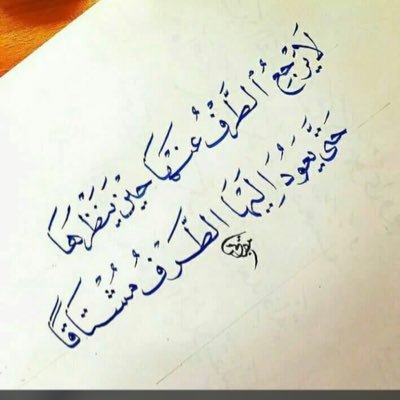 لَا يَرْجِعُ الطَّرْفُ عَنْهَا حِيْنَ يَنْظُرُهَا
حَتَّى يَعُودَ إِلَيْهَا الطَّرْفُ مُشْتَاقًا